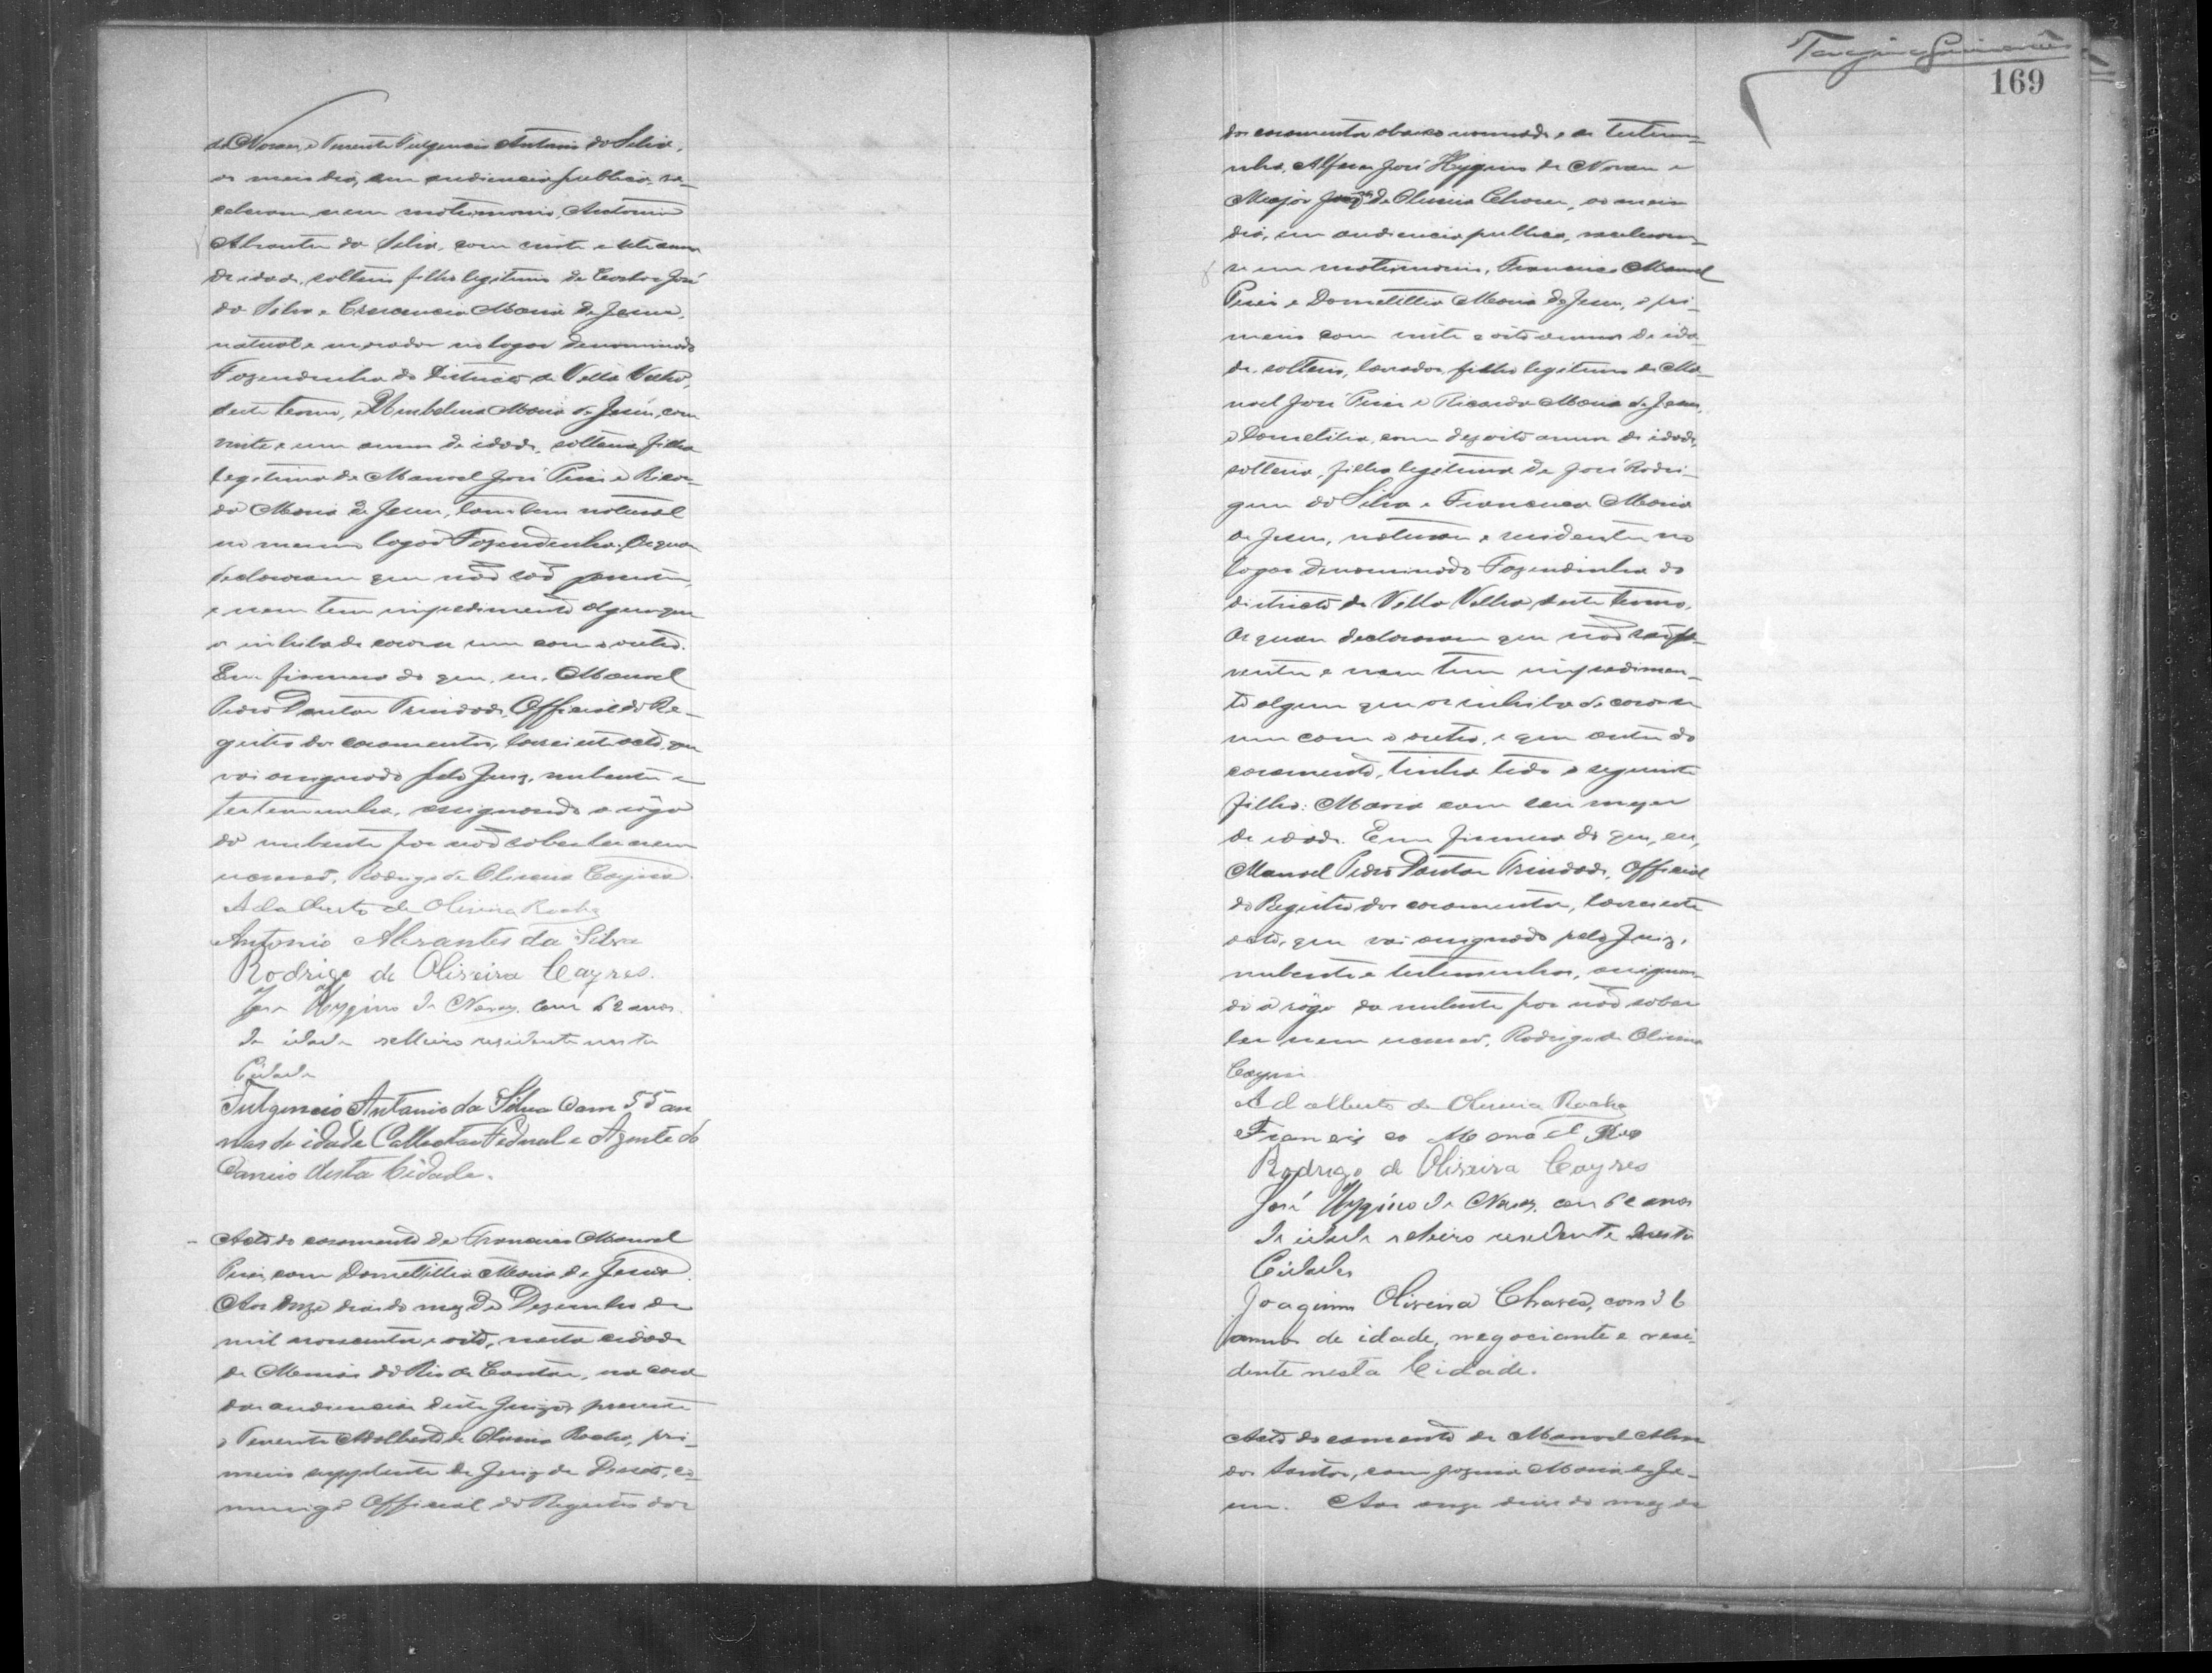 de Novaes, e Tenente Fulgencio Antonio da Silva,
ao meio dia, em audiencia publica, re-
ceberam-se em matrimonio, Antonio
Abrantes da Silva, com vinte e sete annos
de idade, solteiro filho legitimo de Carlos José
da Silva e Crescencia Maria de Jesus,
natural e morador no logar denominado
Fazendinha do Districto de Villa Velha,
deste termo, e Umbelina Maria de Jesus, com
vinte e um annos de idade, solteira filha
legitima de Manoel José Pires e Ricar-
da Maria de Jesus, tambem natural
no mesmo logar Fazendinha. Os quaes
declararam que não são parentes,
e nem tem impedimento algum que
os inhiba de casar-se um com o outro.
Em firmeza do que, eu, Manoel
Pedro Dantas Trindade, Official do Re-
gistro dos casamentos, lavrei este acto, que
vai assignado pelo Juiz, nubentes e
testemunhas, assignando a rôgo
da nubente por não saber ler nem
escrever, Rodrigo de Oliveira Cayres.
Adalberto de Oliveira Rocha
Antonio Abrantes da Silva
Rodrigo de Oliveira Cayres.
José Hygino de Novaes, com 62 anos
de idade selleiro residente nesta
Cidade
Fulgencio Antonio da Silva com 55 an
nos de idade Collector Federal e Agente do
Correio desta Cidade.
Acto do casamento de Francisco Manoel
Pires, com Dometillia Maria de Jesus.
Aos onze dias do mez de Dezembro de
mil novecentos e oito, nesta cidade
de Minas do Rio de Contas, na casa
das audiencias deste Juizo, presente
o Tenente Adalberto de Oliveira Rocha, pri-
meiro supplente do Juiz de Direito, co-
mmigo Official do Registro dos
Guimarães
169
dos casamentos abaixo nomeado e as testemu-
nhas, Alferes José Hygino de Novaes e
Major Joaqm de Oliveira Chaves, ao meio
dia, em audiencia publica, receberam-
se em matrimonio, Francisco Manoel
Pires e Dometillia Maria de Jesus, o pri-
meiro com vinte e oito annos de ida-
de, solteiro, lavrador, filho legitimo de Ma-
noel José Pires e Ricarda Maria de Jesus,
e Dometilia, com dezoito annos de idade,
solteira, filha legitima de José Rodri-
gues da Silva e Francisca Maria
de Jesus, naturaes e residentes no
logar denominado Fazendinha do
districto de Villa Velha, deste termo.
Os quaes declararam que não são pa-
rentes e nem tem impedimen-
to algum que os inhiba de casar-se
um com o outro, e que antes do
casamento, tinha tido o seguinte
filho: Maria com seis mezes
de idade. Em firmeza do que, eu,
Manoel Pedro Dantas Trindade, Official
do Registro dos casamentos, lavrei este
acto, que vai assignado pelo Juiz,
nubentes e testemunhas, assignan-
do a rôgo da nubente por não saber
ler nem escrever, Rodrigo de Oliveira
Cayres
Adalberto de Oliveira Rocha
Francisco Manoel
Rodrigo de Oliveira Cayres
José Hygino de Novaes, com 62 anos
de idade seleiro residente nesta
Cidade
Joaquim Oliveira Chaves, com 36
annos de idade, negociante e resi-
dente nesta Cidade.
Acto do casamento de Manoel Alves
dos Santos, com Jozina Maria de Je-
sus. Aos onze dias do mez de